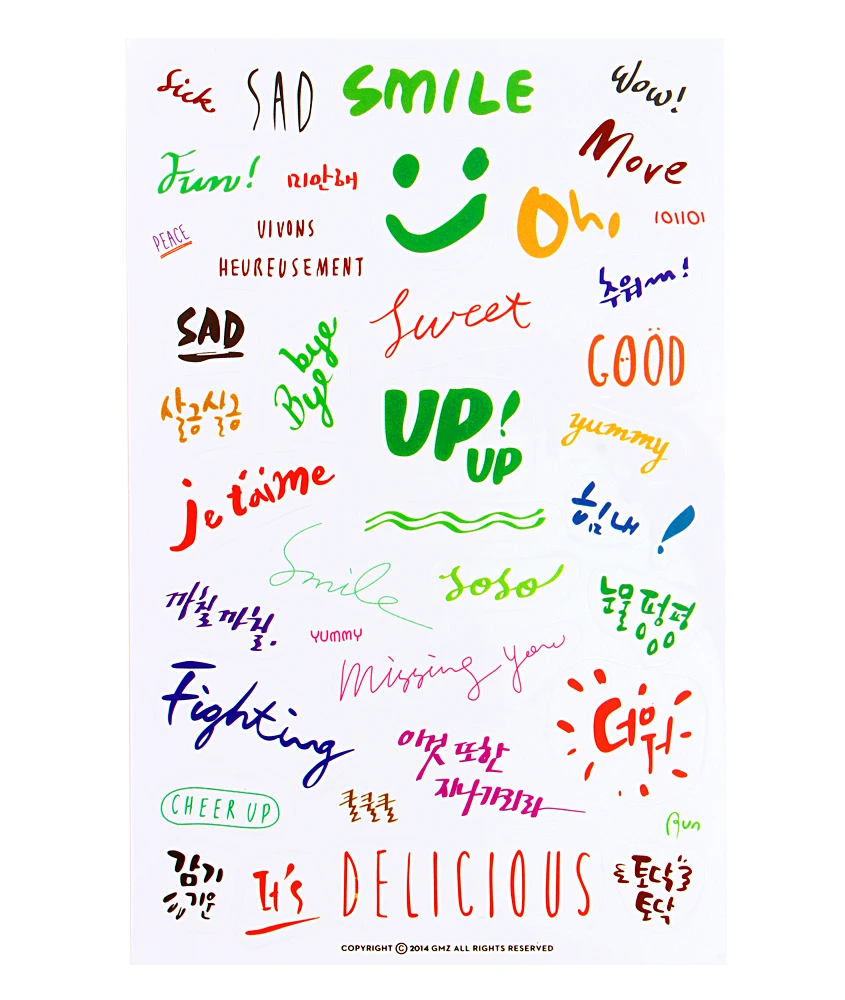 Sick
SAD
SMILE
Wow!
Move
Fun!
미안해
Oh,
101101
PEACE
VIVONS
HEUREUSEMENT
추워~!
SAD
bye
Bye
Sweet
GOOD
살금살금
UP!
UP
yummy
je t'aime
힘내!
Smile
soso
까칠까칠.
눈물 펑펑
YUMMY
Missing you
Fighting
더워
이것 또한
지나가리라
CHEER UP
쿨쿨쿨
Run
감기
기운
It's DELICIOUS
토닥
토닥
COPYRIGHT © 2014 GMZ ALL RIGHTS RESERVED